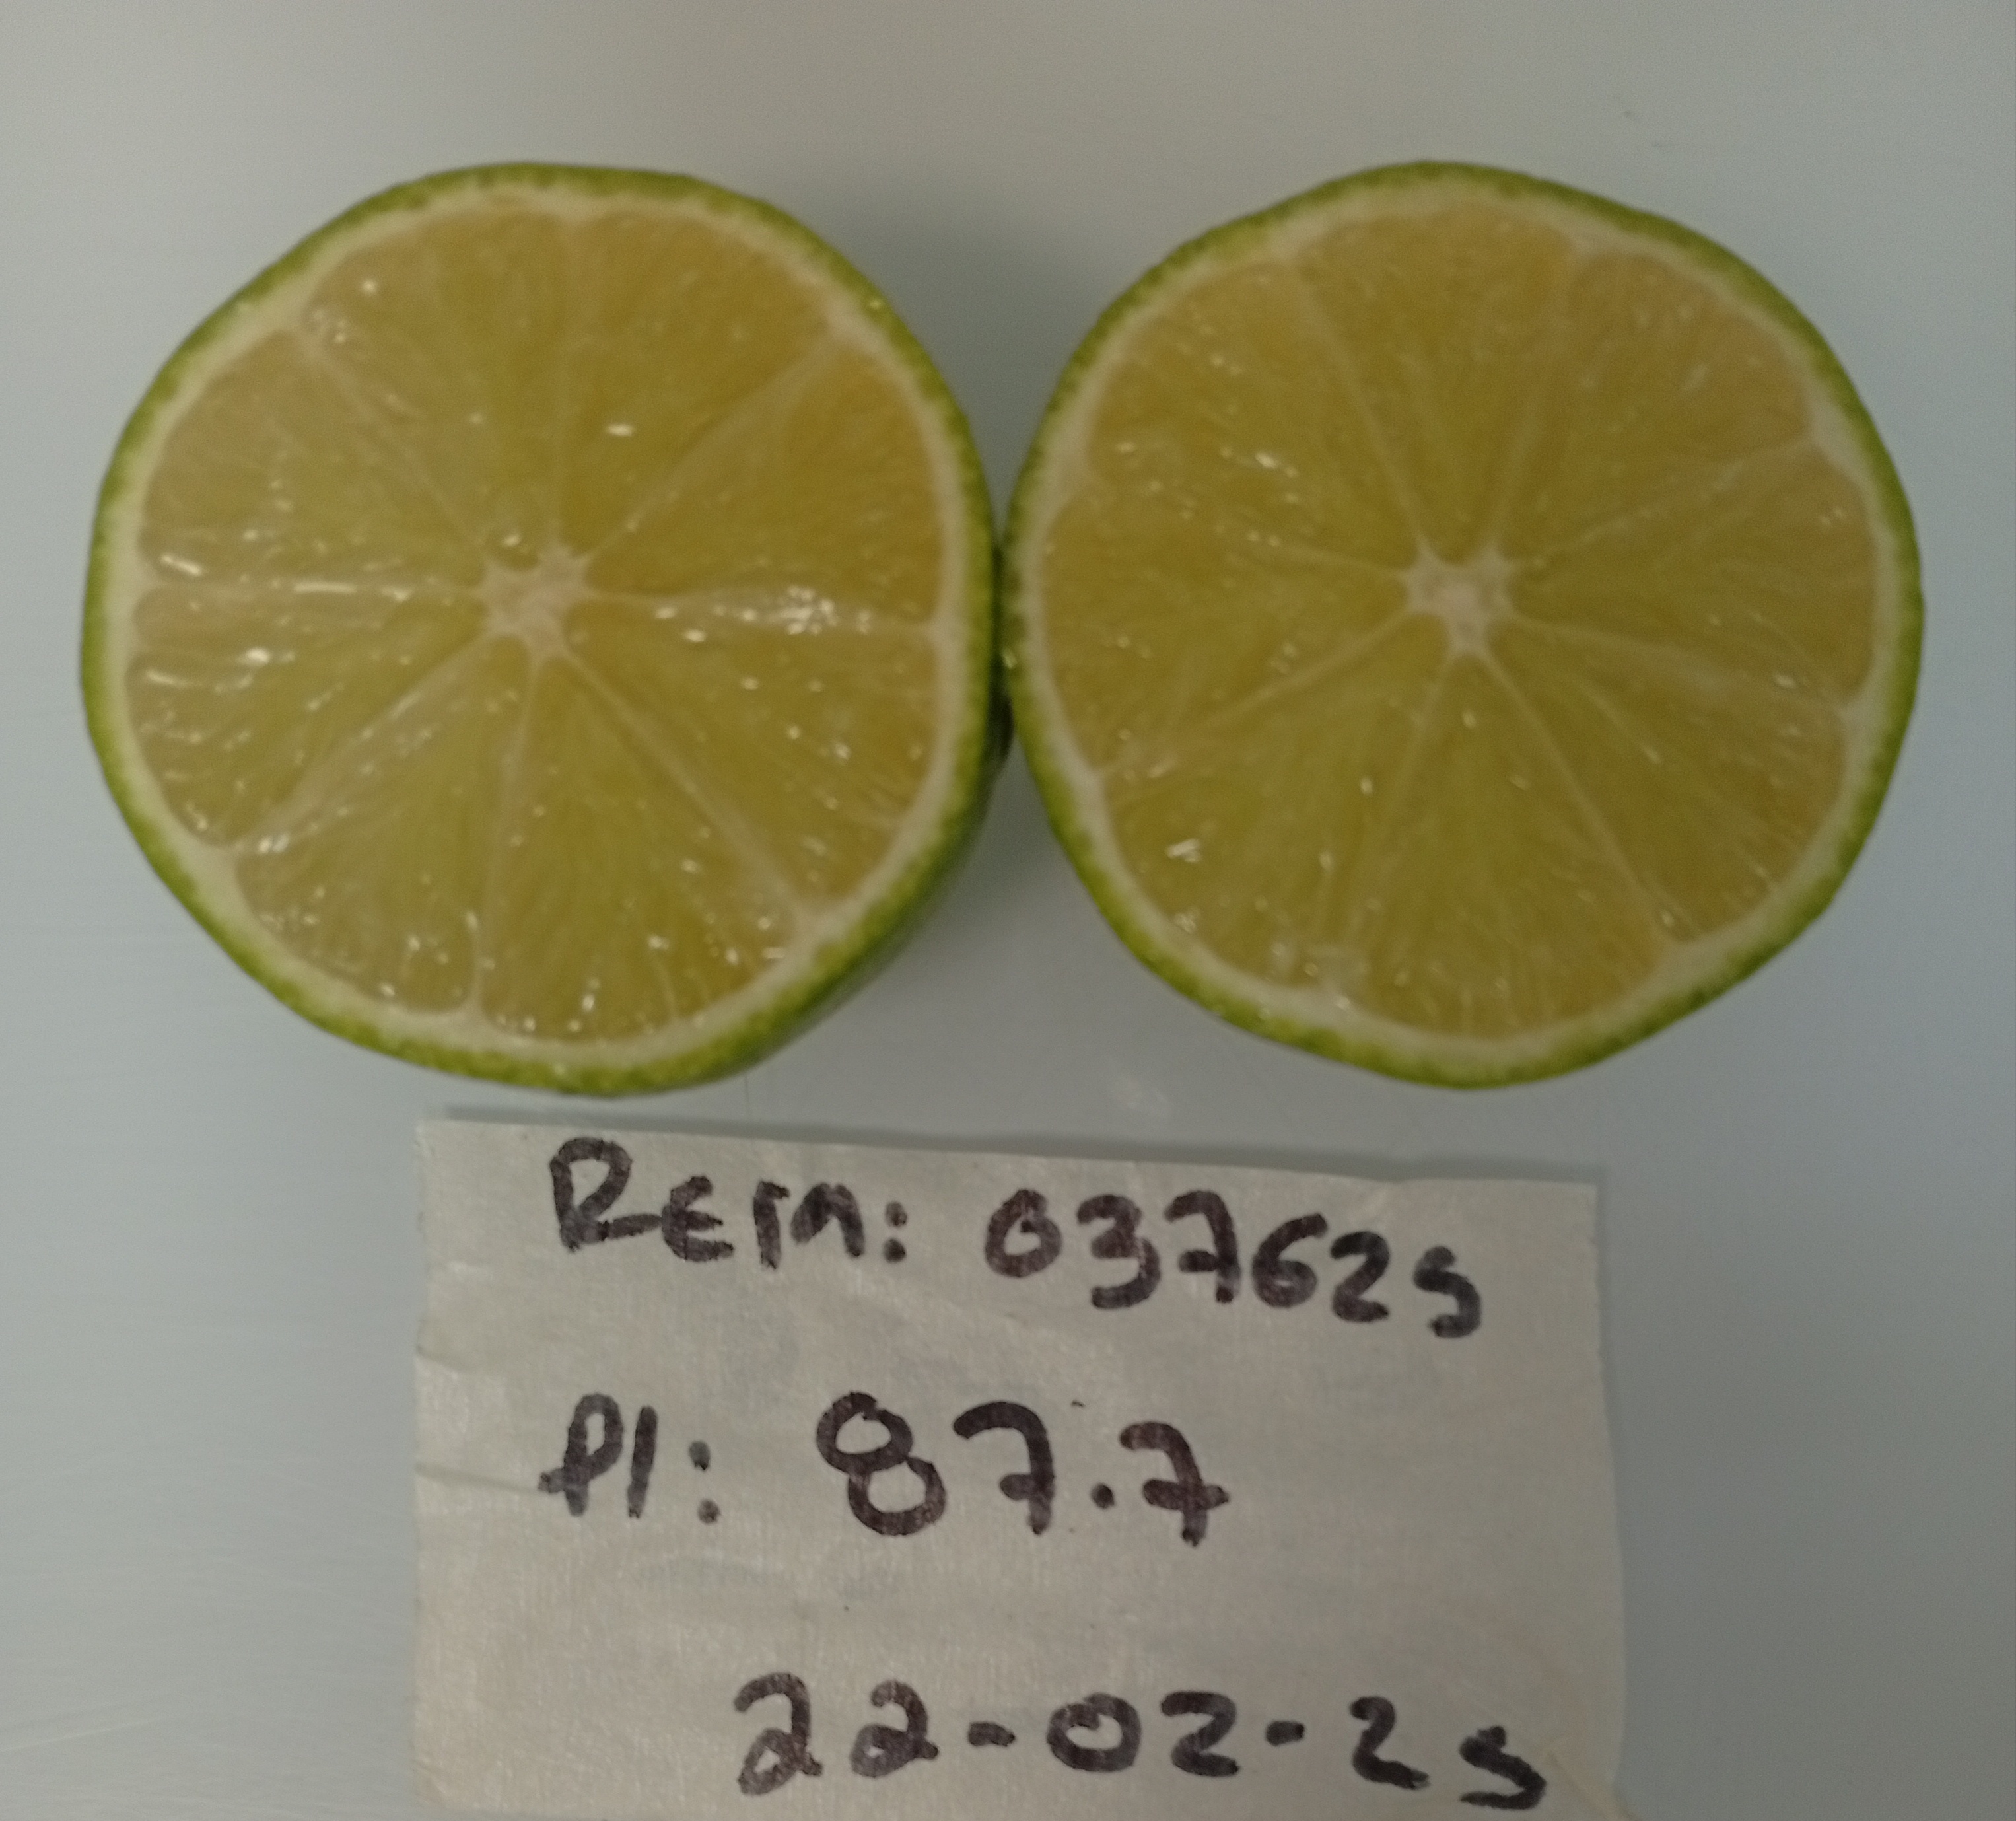 REM: 037625
PI: 87.7
22-02-25